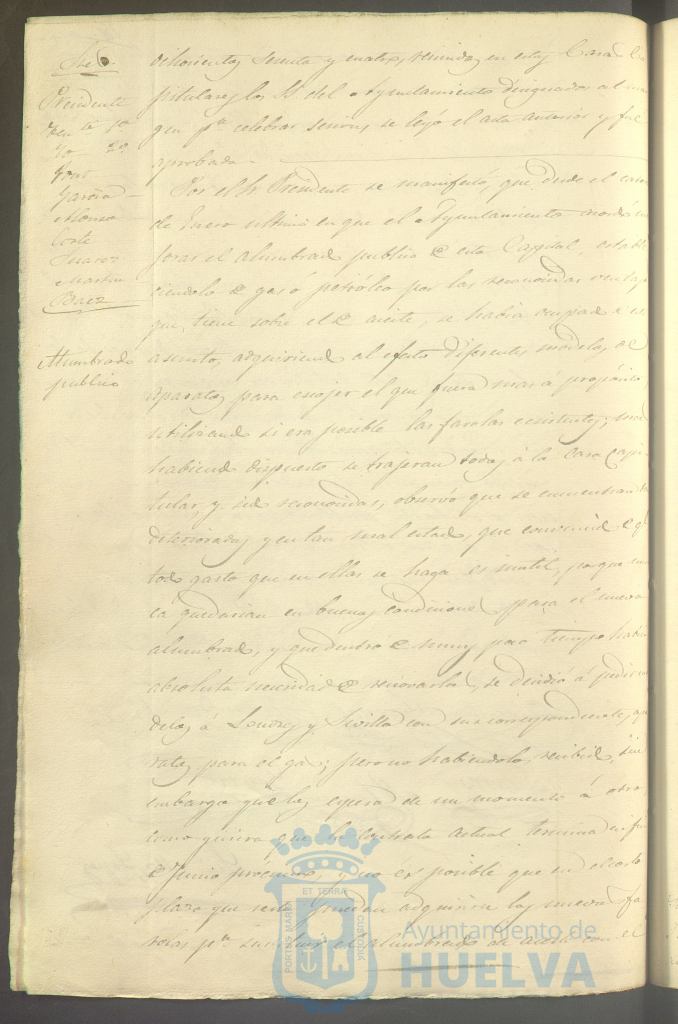 Presidente
Ten.te 1º
Yo 2º
García
Alonso
Corte
Suarez
Martin
Baez
Alumbrado
publico
ochocientos setenta y cuatro, reunidos en estas Casas Ca
pitulares los S.S. del Ayuntamiento designados al mar
gen p.a celebrar sesion, se leyó el acta anterior y fué
aprobada.
Por el Sr. Presidente se manifestó, que desde el
de Enero ultimo en que el Ayuntamiento acordó me
jorar el alumbrado publico de esta Capital, estable
ciendolo de gas ó petróleo por las reconocidas ventajas
que tiene sobre el de aceite, se habia ocupado de este
asunto, adquiriendo al efecto diferentes modelos de
aparatos, para escojer el que fuera mas á propósito,
utilizando si era posible las farolas existentes;
habiendo dispuesto se trajeran todas á la Casa Capi
tular, y reconocidas, observó que se encuentran
deterioradas y en tan mal estado, que
todo gasto que en ellas se haga es inutil, porque nun
ca quedarian en buenas condiciones para el nuevo
alumbrado, y que dentro de muy poco tiempo habia
absoluta necesidad de renovarlas, se decidió á pedir mo
delos á Londres y Sevilla con sus correspondientes apa
ratos para el gas; pero no habiendolos recibido, sin
embargo que los espera de un momento á otro,
como quiera que la contrata actual termina en fin
de Junio próximo, y no es posible que en el corto
plazo que resta puedan adquirirse las nuevas fa
rolas p.a sustituir el alumbrado de aceite con el
PORTUS MARIS
ET TERRÆ
CUSTODIA
Ayuntamiento de
HUELVA